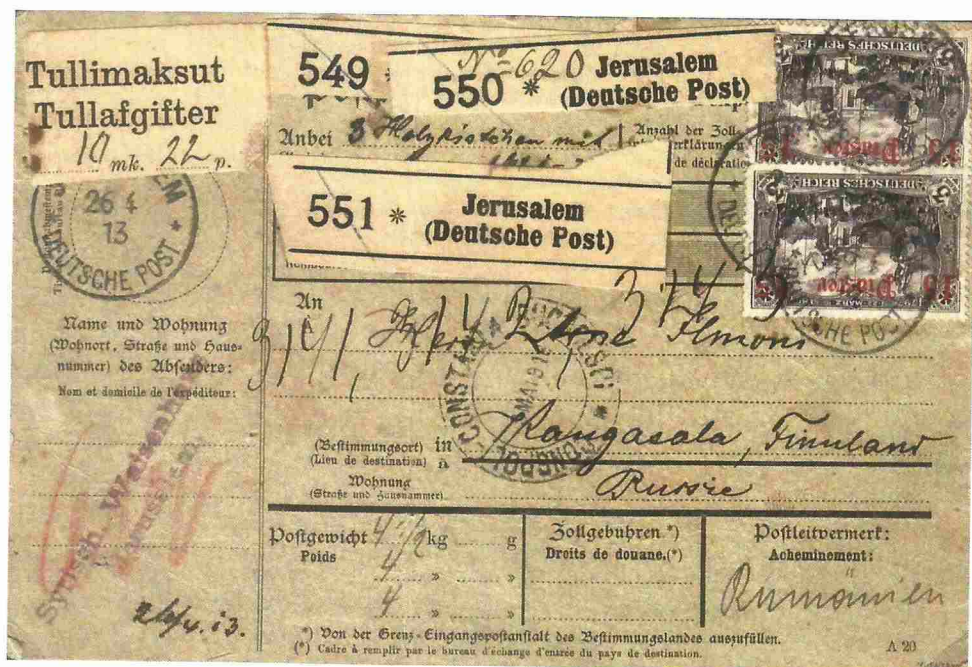 Tullimaksut
Tullafgifter
10 mk. 22 p.
549 *
No 620
550 * Jerusalem
(Deutsche Post)
Anbei 3 Holzkistchen mit
Anzahl der Zoll-
erklärungen
de déclaration
551 * Jerusalem
(Deutsche Post)
DEUTSCHES REICH
15 Piaster 15
DEUTSCHES REICH
15 Piaster 15
26 4
13
DEUTSCHE POST
DEUTSCHE POST
Name und Wohnung
(Wohnort, Straße und Haus-
nummer) des Absenders:
Nom et domicile de l'expéditeur:
Syrisch. Waisenhaus
26/4. 13.
An
À
Ilmoni
CONSTANTA
(Bestimmungsort) in
(Lieu de destination) à
Kangasala, Finnland
Wohnung
(Straße und Hausnummer)
Russie
Postgewicht 4 1/2 kg g
Poids
4 » »
4 » »
Zollgebühren *)
Droits de douane.(*)
Postleitvermerk:
Acheminement:
Rumänien
*) Von der Grenz-Eingangspostanstalt des Bestimmungslandes auszufüllen.
(*) Cadre à remplir par le bureau d'échange d'entrée du pays de destination.
A 20